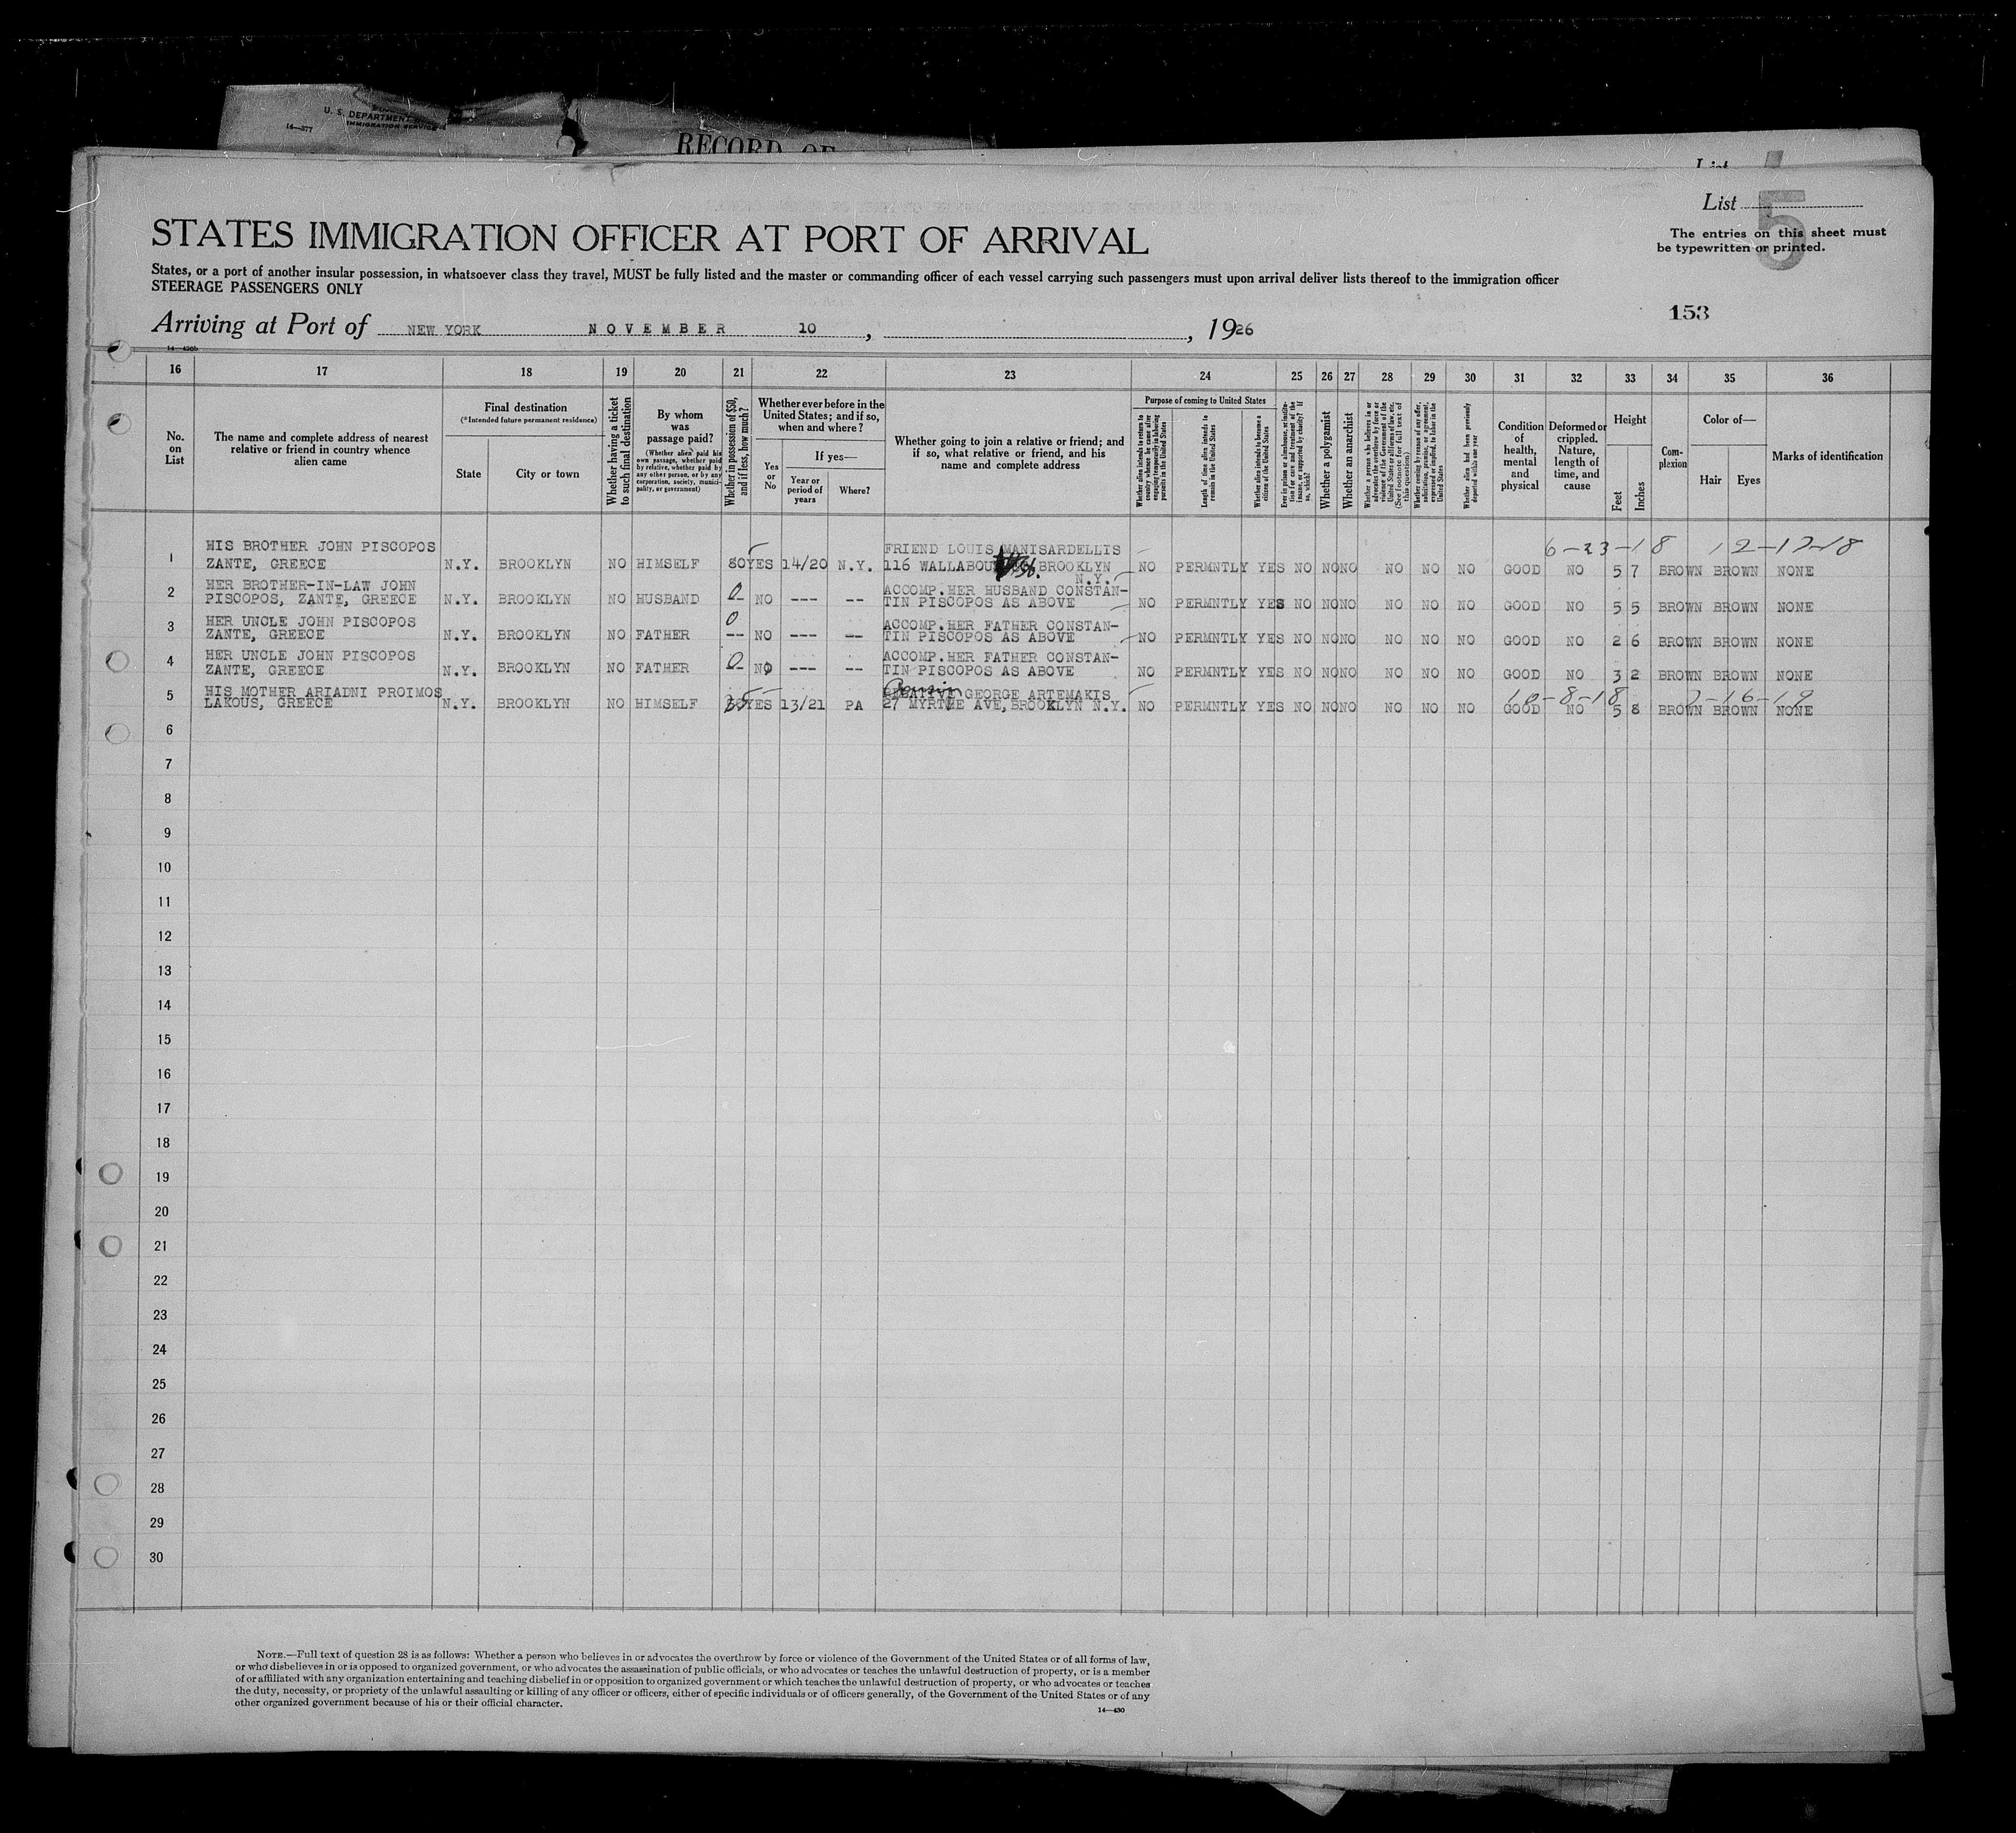 U. S. DEPARTMENT
IMMIGRATION SERVICE
14—377
RECORD OF
List
List
5
The entries on this sheet must
be typewritten or printed.
STATES IMMIGRATION OFFICER AT PORT OF ARRIVAL
States, or a port of another insular possession, in whatsoever class they travel, MUST be fully listed and the master or commanding officer of each vessel carrying such passengers must upon arrival deliver lists thereof to the immigration officer
STEERAGE PASSENGERS ONLY
153
Arriving at Port of NEW YORK NOVEMBER 10, , 1926
14—430b
16 17 18 19 20 21 22 23 24 25 26 27 28 29 30 31 32 33 34 35 36
No. on List
The name and complete address of nearest relative or friend in country whence alien came
Final destination
(*Intended future permanent residence)
State
City or town
Whether having a ticket to such final destination
By whom was passage paid?
(Whether alien paid his own passage, whether paid by relative, whether paid by any other person, or by any corporation, society, municipality, or government)
Whether in possession of $50, and if less, how much?
Whether ever before in the United States; and if so, when and where?
Yes or No
If yes—
Year or period of years
Where?
Whether going to join a relative or friend; and if so, what relative or friend, and his name and complete address
Purpose of coming to United States
Whether alien intends to return to country whence he came after engaging temporarily in laboring pursuits in the United States
Length of time alien intends to remain in the United States
Whether alien intends to become a citizen of the United States
Ever in prison or almshouse, or institution for care and treatment of the insane, or supported by charity? If so, which?
Whether a polygamist
Whether an anarchist
Whether a person who believes in or advocates the overthrow by force or violence of the Government of the United States or all forms of law, etc. (See footnote for full text of this question)
Whether coming by reason of any offer, solicitation, promise, or agreement, expressed or implied, to labor in the United States
Whether alien had been previously deported within one year
Condition of health, mental and physical
Deformed or crippled. Nature, length of time, and cause
Height
Feet
Inches
Complexion
Color of—
Hair
Eyes
Marks of identification
6-23-18 12-17-18
HIS BROTHER JOHN PISCOPOS FRIEND LOUIS MANISARDELLIS
1 ZANTE, GREECE N.Y. BROOKLYN NO HIMSELF 80 YES 14/20 N.Y. 116 BROOKLYN N.Y. NO PERMNTLY YES NO NO NO NO NO NO GOOD NO 5 7 BROWN BROWN NONE
HER BROTHER-IN-LAW JOHN ACCOMP.HER HUSBAND CONSTAN-
2 PISCOPOS, ZANTE, GREECE N.Y. BROOKLYN NO HUSBAND 0 NO --- -- TIN PISCOPOS AS ABOVE NO PERMNTLY YES NO NO NO NO NO NO GOOD NO 5 5 BROWN BROWN NONE
HER UNCLE JOHN PISCOPOS 0 ACCOMP.HER FATHER CONSTAN-
3 ZANTE, GREECE N.Y. BROOKLYN NO FATHER -- NO --- -- TIN PISCOPOS AS ABOVE NO PERMNTLY YES NO NO NO NO NO NO GOOD NO 2 6 BROWN BROWN NONE
HER UNCLE JOHN PISCOPOS ACCOMP.HER FATHER CONSTAN-
4 ZANTE, GREECE N.Y. BROOKLYN NO FATHER 0 NO --- -- TIN PISCOPOS AS ABOVE NO PERMNTLY YES NO NO NO NO NO NO GOOD NO 3 2 BROWN BROWN NONE
HIS MOTHER ARIADNI PROIMOS Cousin GEORGE ARTEMAKIS 10-8-18 2-16-19
5 LAKOUS, GREECE N.Y. BROOKLYN NO HIMSELF YES 13/21 PA 27 MYRTHE AVE, BROOKLYN N.Y. NO PERMNTLY YES NO NO NO NO NO NO GOOD NO 5 8 BROWN BROWN NONE
6
7
8
9
10
11
12
13
14
15
16
17
18
19
20
21
22
23
24
25
26
27
28
29
30
NOTE.—Full text of question 28 is as follows: Whether a person who believes in or advocates the overthrow by force or violence of the Government of the United States or of all forms of law,
or who disbelieves in or is opposed to organized government, or who advocates the assassination of public officials, or who advocates or teaches the unlawful destruction of property, or is a member
of or affiliated with any organization entertaining and teaching disbelief in or opposition to organized government or which teaches the unlawful destruction of property, or who advocates or teaches
the duty, necessity, or propriety of the unlawful assaulting or killing of any officer or officers, either of specific individuals or of officers generally, of the Government of the United States or of any
other organized government because of his or their official character.
14—430